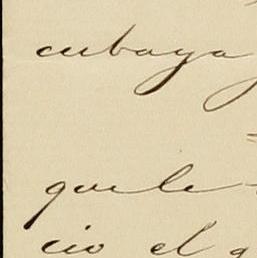 cubaya
que le
cio el q